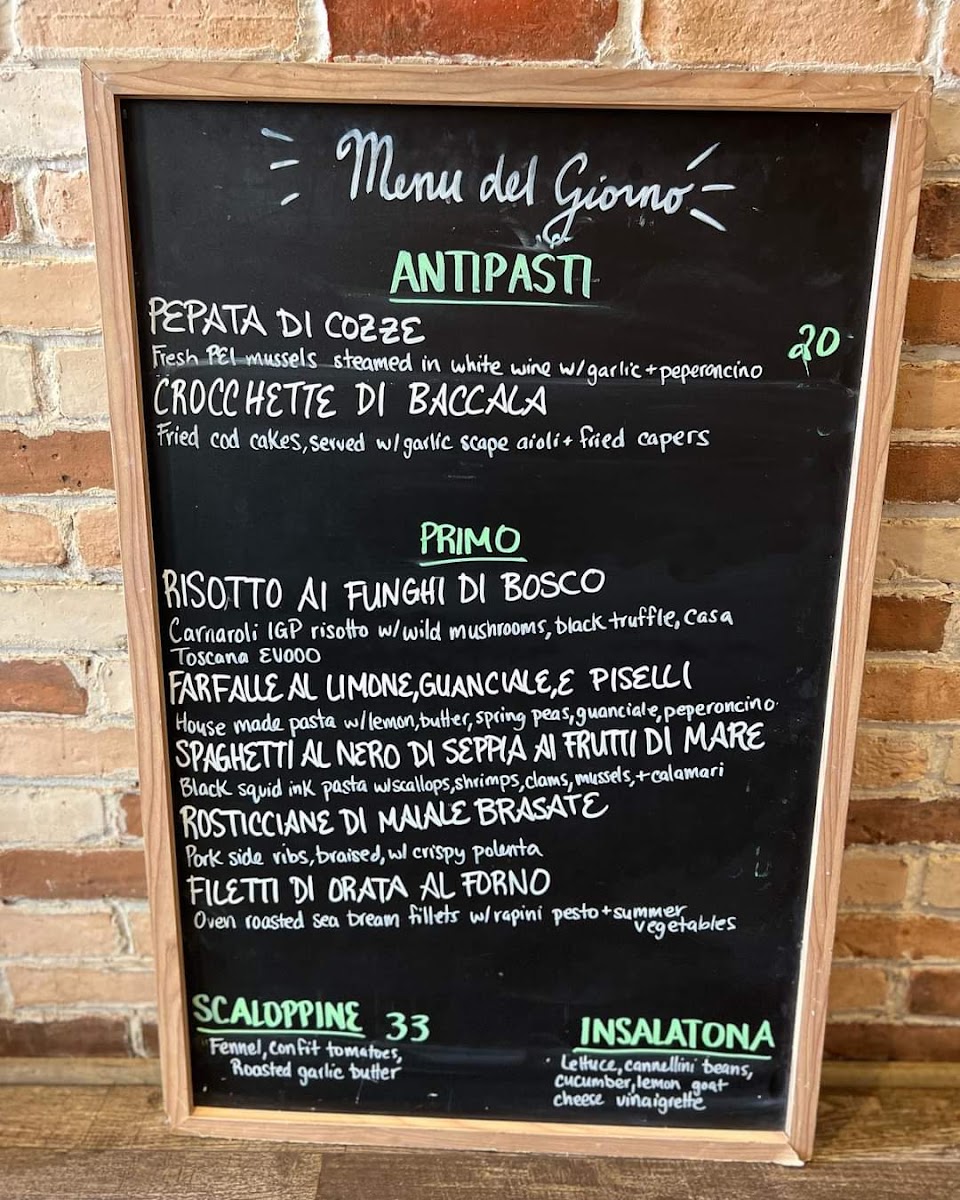 Menu del Giorno
ANTIPASTI
PEPATA DI COZZE
20
Fresh PEI mussels steamed in white wine w/garlic + peperoncino
CROCCHETTE DI BACCALA
Fried cod cakes, served w/garlic scape aioli + fried capers
PRIMO
RISOTTO AI FUNGHI DI BOSCO
Carnaroli IGP risotto w/wild mushrooms, black truffle, Casa
Toscana EVOOO
FARFALLE AL LIMONE, GUANCIALE, E PISELLI
House made pasta w/lemon, butter, spring peas, guanciale, peperoncino
SPAGHETTI AL NERO DI SEPPIA AI FRUTTI DI MARE
Black squid ink pasta w/scallops, shrimps, clams, mussels, + calamari
ROSTICCIANE DI MAIALE BRASATE
Pork side ribs, braised, w/ crispy polenta
FILETTI DI ORATA AL FORNO
Oven roasted sea bream fillets w/rapini pesto + summer
vegetables
SCALOPPINE 33
Fennel, confit tomatoes,
Roasted garlic butter
INSALATONA
Lettuce, cannellini beans,
cucumber, lemon goat
cheese vinaigrette